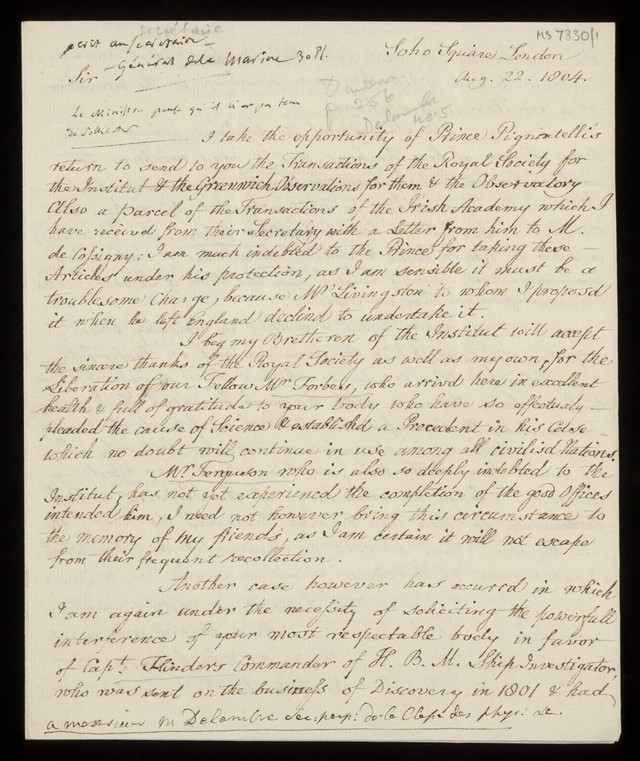 secrétaire
MS 7330/1
ecrit au secretaire
Général de la Marine
Soho Square London
Sir
Aug. 22. 1804.
Le Ministre pense qu'il n'a pas
Delambre
No. 5
I take the opportunity of Prince Pignatelli's
return to send to you the Transactions of the Royal Society for
the Institut & the Greenwich Observations for them & the Observatory
also a parcel of the Transactions of the Irish Academy which I
have received from their Secretary with a Letter from him to M.
de Cossigny: I am much indebted to the Prince for taking these
Articles under his protection, as I am sensible it must be a
troublesome charge, because Mr Livingston to whom I proposd
it when he left England declind to undertake it.
I beg my Bretheren of the Institut will accept
the sincere thanks of the Royal Society as well as my own, for the
Liberation of our Fellow Mr Forbes, who arrivd here in excellent
health & full of gratitude to your body who have so effectualy
pleaded the cause of Science & establishd a Precedent in his Case
which no doubt will continue in use among all civilisd Nations.
Mr Ferguson who is also so deeply indebted to the
Institut, has not yet experienced the completion of the good Offices
intended him, I need not however bring this circumstance to
the memory of my friends, as I am certain it will not escape
from their frequent recollection.
Another case however has occurd in which
I am again under the necessity of soliciting the powerfull
interference of your most respectable body in favor
of Capt. Flinders Commander of H. B. M. Ship Investigator,
who was sent on the business of Discovery in 1801 & had
a monsieur M Delambre Sec: perp: de la Classe des phys: &c.